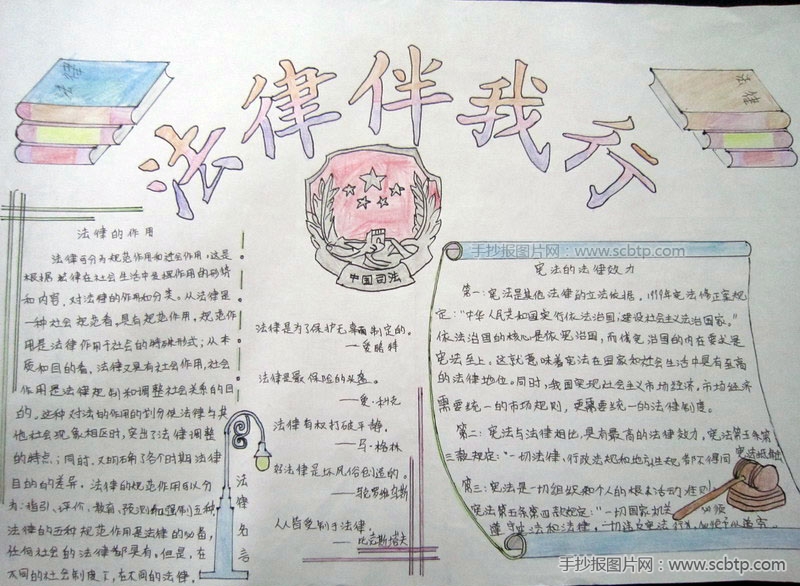 法律伴我行
法律
中国司法
法律的作用
法律可分为规范作用和社会作用,这是
根据法律在社会生活中发挥作用的形式
和内容,对法律的作用的分类。从法律是
一种社会规范看,具有规范作用,规范作
用是法律作用于社会的特殊形式;从本
质和目的看,法律又具有社会作用,社会
作用是法律规制和调整社会关系的目
的。这种对法的作用的划分使法律与其
他社会现象相区别,突出了法律调整
的特点;同时,又明确了各个时期法律
目的的差异。法律的规范作用可以分
为:指引、评价、教育、预测和强制五种
法律的五种规范作用是法律的必备,
任何社会的法律都具有。但是,在
不同的社会制度下,在不同的法律,
法律名言
法律是为了保护无辜而制定的。
——爱略特
法律是最保险的
——爱·科克
法律有权打破平静。
——马·格林
好法律是坏风俗创造的。
——马克罗维乌斯
人人皆受制于法律,
——比克斯塔夫
手抄报图片网:www.scbtp.com
宪法的法律效力
第一:宪法是其他法律的立法依据,1999年宪法修正案规
定:"中华人民共和国实行依法治国,建设社会主义法治国家。"
依法治国的核心是依宪治国,而依宪治国的内在要求是
宪法至上,这就意味着宪法在国家和社会生活中具有至高
的法律地位。同时,我国实现社会主义市场经济,市场经济
需要统一的市场规则,更需要统一的法律制度。
第二:宪法与法律相比,具有最高的法律效力,宪法第五条第
三款规定:"一切法律、行政法规和地方性法规都不得同宪法抵触
第三:宪法是一切组织和个人的根本活动准则,
宪法第五条第四款规定:"一切国家机关 必须
遵守宪法和法律,一切违反宪法 行为,必须予以追究。
手抄报图片网:www.scbtp.com